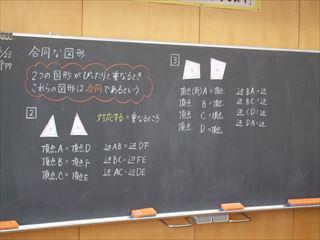 合同な図形
P77
2つの図形がぴったりと重なるとき
これらの図形は合同であるという
2
対応する=重なるところ
頂点A=頂点D
頂点B=頂点F
頂点C=頂点E
辺AB=辺DF
辺BC=辺FE
辺AC=辺DE
3
頂点(角)A=頂点
頂点B=頂点
頂点C=頂点
頂点D=頂点
辺BA=辺
辺BC=辺
辺CD=辺
辺DA=辺